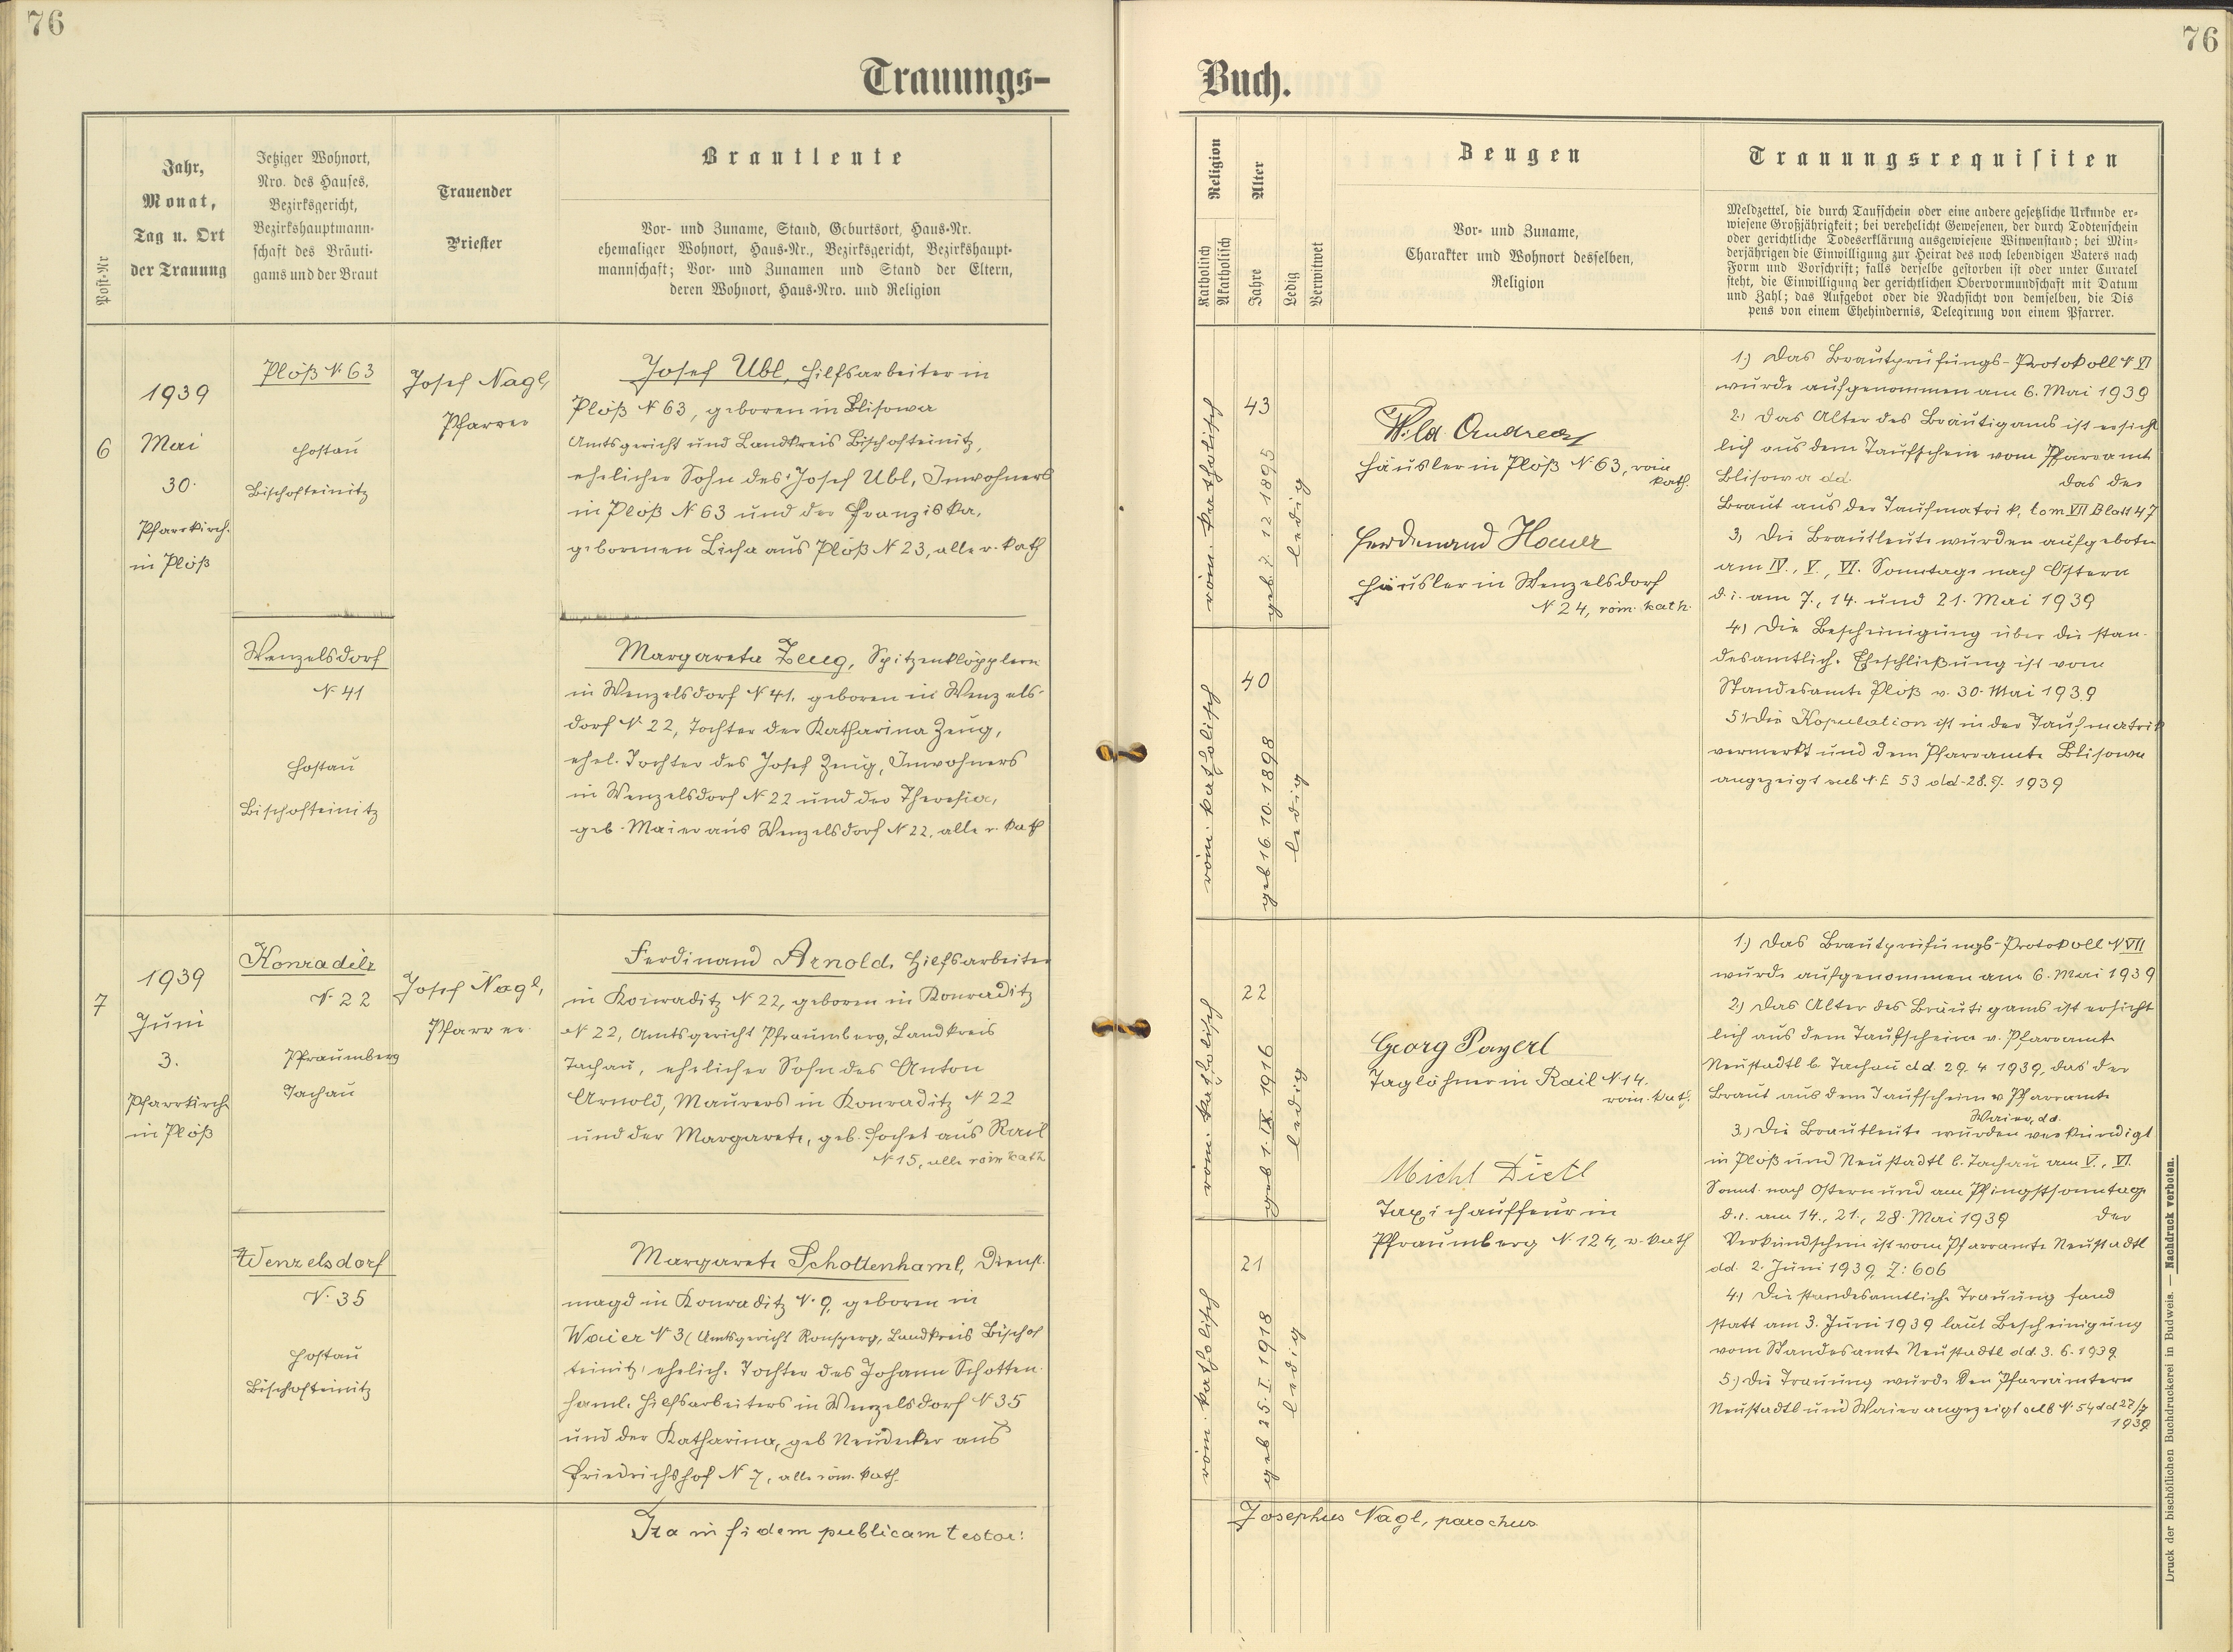 76
76
Trauungs-
Buch.
Post-Nr
Jahr,
Monat,
Tag u. Ort
der Trauung
Jetziger Wohnort,
Nro. des Hauses,
Bezirksgericht,
Bezirkshauptmann-
schaft des Bräuti-
gams und der Braut
Trauender
Priester
Brautleute
Vor- und Zuname, Stand, Geburtsort, Haus-Nr.
ehemaliger Wohnort, Haus-Nr., Bezirksgericht, Bezirkshaupt-
mannschaft; Vor- und Zunamen und Stand der Eltern,
deren Wohnort, Haus-Nro. und Religion
Religion
Katholisch
Akatholisch
Alter
Jahre
Ledig
Verwitwet
Zeugen
Vor- und Zuname,
Charakter und Wohnort desselben,
Religion
Trauungsrequisiten
Meldzettel, die durch Taufschein oder eine andere gesetzliche Urkunde er-
wiesene Großjährigkeit; bei verehelicht Gewesenen, der durch Todtenschein
oder gerichtliche Todeserklärung ausgewiesene Witwenstand; bei Min-
derjährigen die Einwilligung zur Heirat des noch lebendigen Vaters nach
Form und Vorschrift; falls derselbe gestorben ist oder unter Curatel
steht, die Einwilligung der gerichtlichen Obervormundschaft mit Datum
und Zahl; das Aufgebot oder die Nachsicht von demselben, die Dis
pens von einem Ehehindernis, Delegirung von einem Pfarrer.
6
1939
Mai
30.
Pfarrkirch.
in Plöß
Plöß N 63
Hostau
Bischofteinitz
Josef Nagl,
Pfarrer
Josef Ubl, Hilfsarbeiter in
Plöß N 63, geboren in Blisowa
Amtsgericht und Landkreis Bischofteinitz,
ehelicher Sohn des Josef Ubl, Inwohners
in Plöß N 63 und der Franziska,
gebornen Licha aus Plöß N 23, alle r. kath
Wenzelsdorf
N 41
Hostau
Bischofteinitz
Margareta Zeug, Spitzenklöpplerin
in Wenzelsdorf N 41, geboren in Wenzels-
dorf N 22, Tochter der Katharina Zeug,
ehel. Tochter des Josef Zeug, Inwohners
in Wenzelsdorf N 22 und der Theresia,
geb. Maier aus Wenzelsdorf N 22, alle r. kath
röm. katholisch
43
geb. 7. 12. 1895
ledig
röm. katholisch
40
geb 16. 10. 1898
ledig
Wild Andreas
Häusler in Plöß N 63, röm
kath.
Ferdinand Hauer
Häusler in Wenzelsdorf
N 24, röm. kath.
1.) Das Brautprüfungs-Protokoll N VI
wurde aufgenommen am 6. Mai 1939
2.) Das Alter des Bräutigams ist ersicht
lich aus dem Taufschein vom Pfarramt
Blisowa dd. das der
Braut aus der Taufmatrik, tom VII Blatt 47
3.) Die Brautleute wurden aufgeboten
am IV., V., VI. Sonntage nach Ostern
d. i. am 7., 14. und 21. Mai 1939
4.) Die Bescheinigung über die stan-
desamtlich. Eheschließung ist vom
Standesamte Plöß v. 30. Mai 1939
5.) Die Kopulation ist in der Taufmatrik
vermerkt und dem Pfarramte Blisowa
angezeigt sub N. E 53 dd. 28. 7. 1939
7
1939
Juni
3.
Pfarrkirch
in Plöß
Konraditz
N. 22
Pfraumberg
Tachau
Josef Nagl,
Pfarrer.
Ferdinand Arnold, Hilfsarbeiter
in Konraditz N 22, geboren in Konraditz
N 22, Amtsgericht Pfraumberg, Landkreis
Tachau, ehelicher Sohn des Anton
Arnold, Maurers in Konraditz N 22
und der Margarete, geb. Hochet aus Rail
N 15, alle röm kath
Wenzelsdorf
N. 35
Hostau
Bischofteinitz
Margarete Schottenhaml, Dienst-
magd in Konraditz N. 9, geboren in
Waier N 3 (Amtsgericht Ronsperg, Landkreis Bischof
teinitz, ehelich. Tochter des Johann Schotten-
haml, Hilfsarbeiters in Wenzelsdorf N 35
und der Katharina, geb Neudecker aus
Friedrichshof N 7, alle röm. kath.
röm. katholisch
22
geb 1. IX. 1916
ledig
röm. katholisch
21
geb 25. I. 1918
ledig
Georg Payerl
Taglöhner in Rail N 14.
röm. kath.
Michl Dietl
Taxichauffeur in
Pfraumberg N. 124, r. kath
1.) Das Brautprüfungs-Protokoll N VII
wurde aufgenommen am 6. Mai 1939
2.) Das Alter des Bräutigams ist ersicht
lich aus dem Taufscheine v. Pfarramte
Neustadtl b. Tachau dd. 29. 4. 1939, das der
Braut aus dem Taufscheine v Pfarramte
Waier, dd.
3.) Die Brautleute wurden verkündigt
in Plöß und Neustadtl b. Tachau am V., VI.
Sonnt. nach Ostern und am Pfingstsonntage
d. i. am 14., 21., 28. Mai 1939 Der
Verkündschein ist vom Pfarramte Neustadtl
dd. 2. Juni 1939, Z: 606
4.) Die standesamtliche Trauung fand
statt am 3. Juni 1939 laut Bescheinigung
vom Standesamte Neustadtl dd. 3. 6. 1939.
5.) Die Trauung wurde den Pfarrämtern
Neustadtl und Waier angezeigt sub N. 54 dd 27/7
1939
Ita in fidem publicam testor:
Josephus Nagl, parochus.
Druck der bischöflichen Buchdruckerei in Budweis. — Nachdruck verboten.